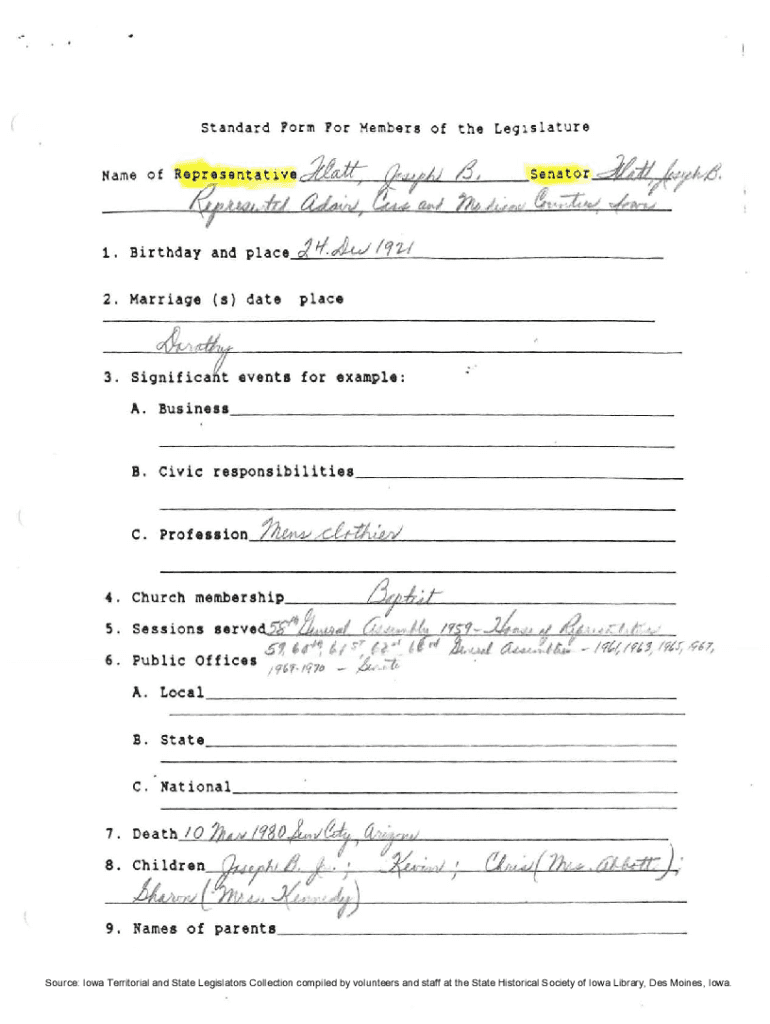 Standard Form For Members of the Legislature
Name of Representative Flatt, Joseph B. Senator Flatt, Joseph B.
Represented Adair, Cass and Madison Counties, Iowa
1. Birthday and place 24 Dec 1921
2. Marriage (s) date place
Dorothy
3. Significant events for example:
A. Business
B. Civic responsibilities
C. Profession Mens clothier
4. Church membership Baptist
5. Sessions served 58th General Assembly 1959 - House of Representatives
59, 60th, 61st, 62nd, 63rd General Assemblies - 1961, 1963, 1965, 1967,
6. Public Offices 1969-1970 - Senate
A. Local
B. State
C. National
7. Death 10 Mar 1980 Sun City, Arizona
8. Children Joseph B. Jr.; Kevin; Chris (Mrs. Abbott);
Sharon (Mrs. Kennedy)
9. Names of parents
Source: Iowa Territorial and State Legislators Collection compiled by volunteers and staff at the State Historical Society of Iowa Library, Des Moines, Iowa.